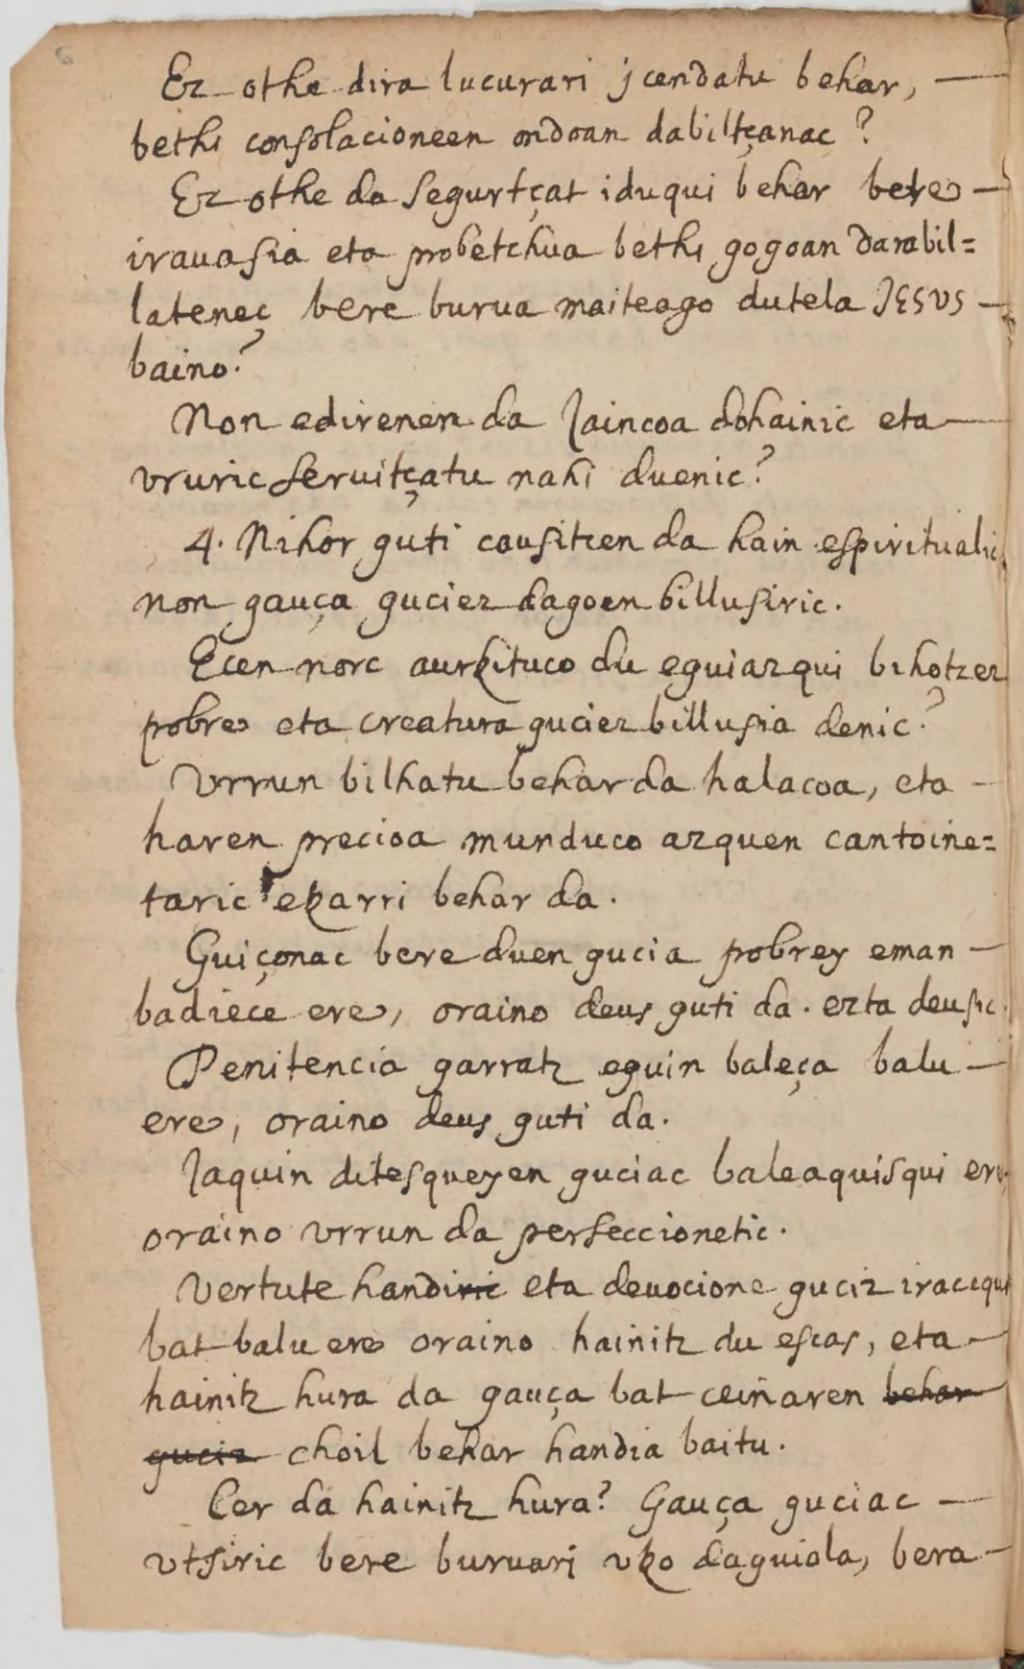 Ez othe dira lucurari jcendatu behar, —
bethi consolacioneen ondoan dabiltçanac?
Ez othe da segurtçat iduqui behar bere —
irauasia eta probetchua bethi gogoan darabil=
latenec bere burua maiteago dutela JESUS —
baino?
Non edirenen da Jaincoa dohainic eta —
vruric seruitçatu nahi duenic?
4. Nihor guti causitzen da hain espiritualic,
non gauça guciez dagoen billusiric.
Ecen norc aurkituco du eguiazqui bihotzez
pobre eta creatura guciez billusia denic?
Vrrun bilhatu behar da halacoa, eta —
haren precioa munduco azquen cantoine=
taric ekarri behar da.
Guiçonac bere duen gucia pobrey eman —
badiece ere, oraino deus guti da. ezta deusic.
Penitencia garratz eguin baleça balu —
ere, oraino deus guti da.
Jaquin ditesqueyen guciac baleaquisqui ere,
oraino vrrun da perfeccionetic.
Vertute handiric eta deuocione guciz iracequi
bat balu ere oraino hainitz du escas, eta —
hainitz hura da gauça bat ceiñaren behar
guciz choil behar handia baitu.
Cer da hainitz hura? Gauça guciac —
vtsiric bere buruari vko daguiola, bera —